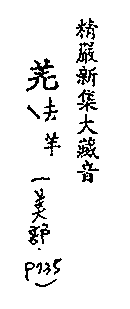 精嚴新集大藏音
羌去羊一美部.
p735)